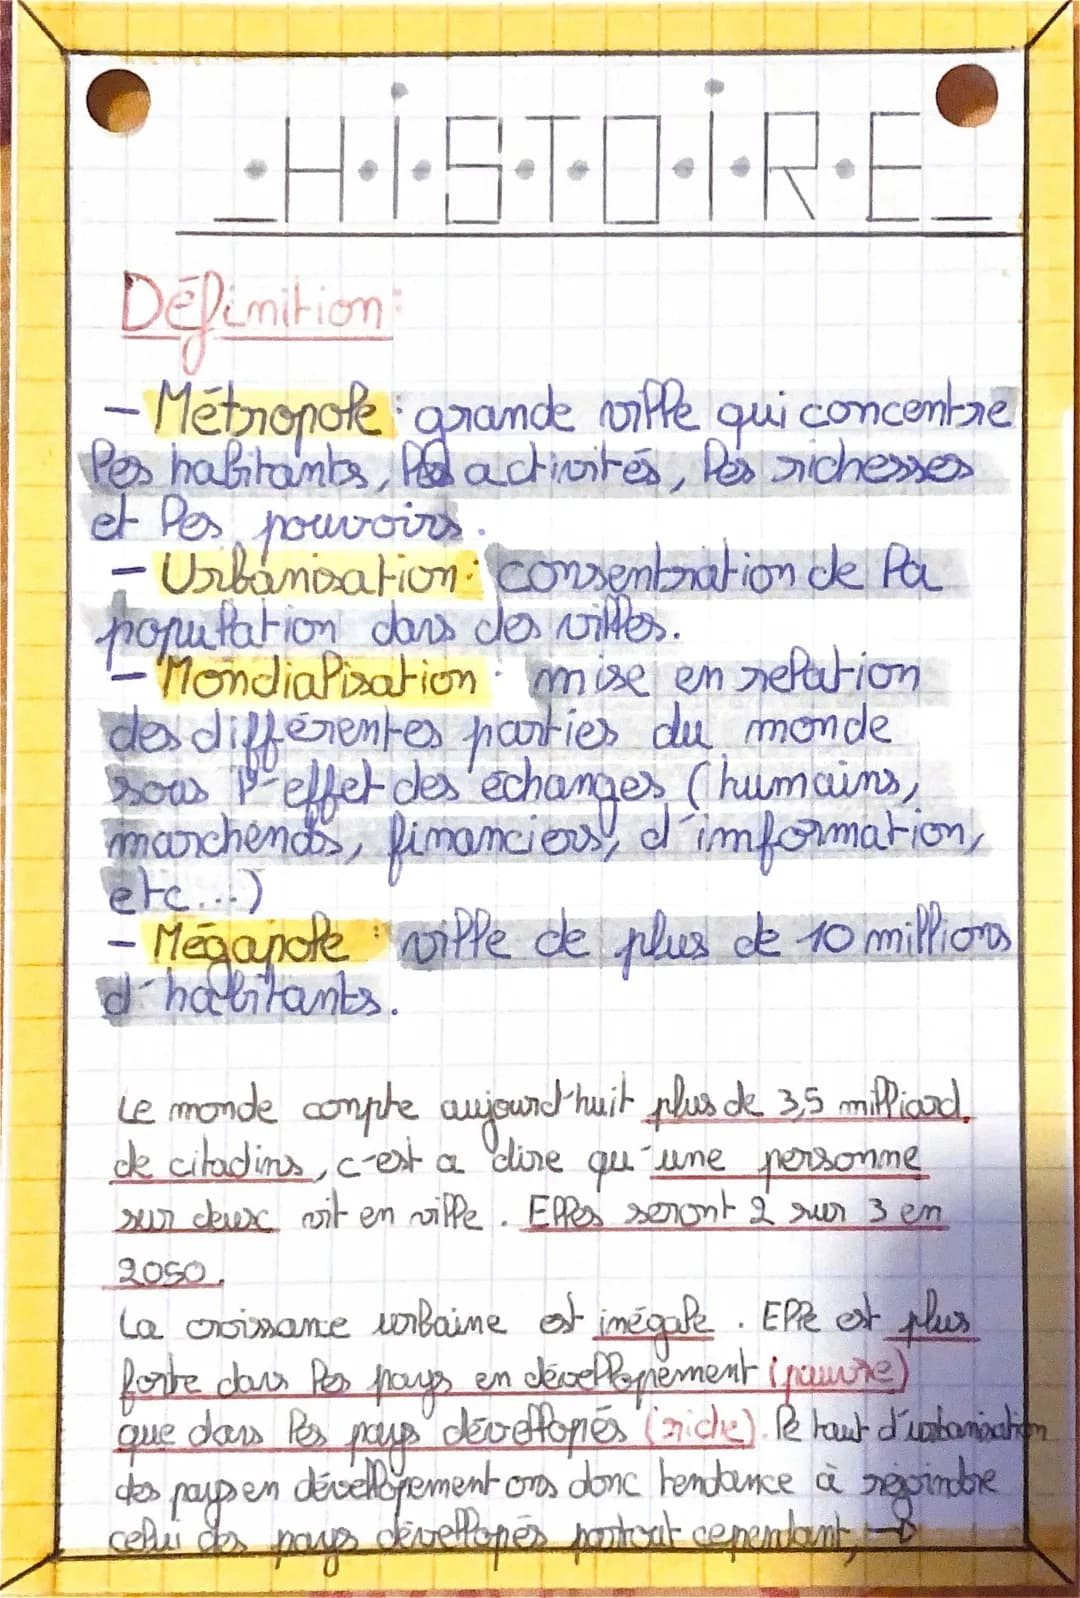 HiSTOiRE
Définition:
- Métropole : grande ville qui concentre
les habitants, les activités, les richesses
et les pouvoirs.
- Urbanisation : consentration de la
population dans des villes.
- Mondialisation : mise en relation
des différentes parties du monde
sous l'effet des échanges (humains,
marchends, financiers, d'imformation,
etc...)
- Mégapole : ville de plus de 10 millions
d'habitants.
Le monde compte aujourd'huit plus de 3,5 milliard
de citadins, c'est a dire qu'une personne
sur deux vit en ville. Elles seront 2 sur 3 en
2050.
La croissance urbaine est inégale. Elle est plus
forte dans les pays en dévellopement (pauvre)
que dans les pays dévellopés (riche). le taut d'urbanisation
des pays en dévellopement ons donc tendance à rejoindre
celui des pays dévellopés partout cependant, →